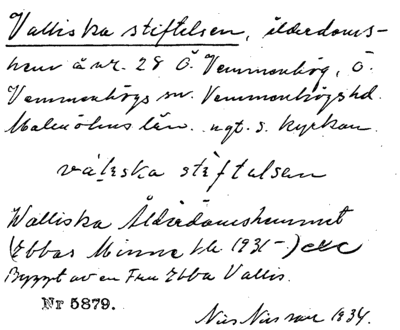 Valliska stiftelsen, ålderdoms-
hem å nr. 28 Ö. Vemmenhög, Ö.
Vemmenhögs sn. Vemmenhögs hd.
Malmöhus län. ngt. s. kyrkan.
väl̥eska stiftalsen
Walliska Ålderdomshemmet
(Ebbas Minne bl. 1931-)
Byggt av en Fru Ebba Vallis.
Nr 5879.
Nils Nilsson 1934.